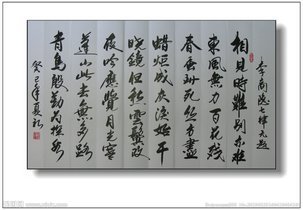 李商隐七律无题
相見時難别亦难
東風無力百花残
春蚕到死丝方盡
蜡炬成灰淚始干
晓鏡但愁雲鬓改
夜吟應覺月光寒
蓬山此去無多路
青鳥殷勤为探看
癸巳年夏